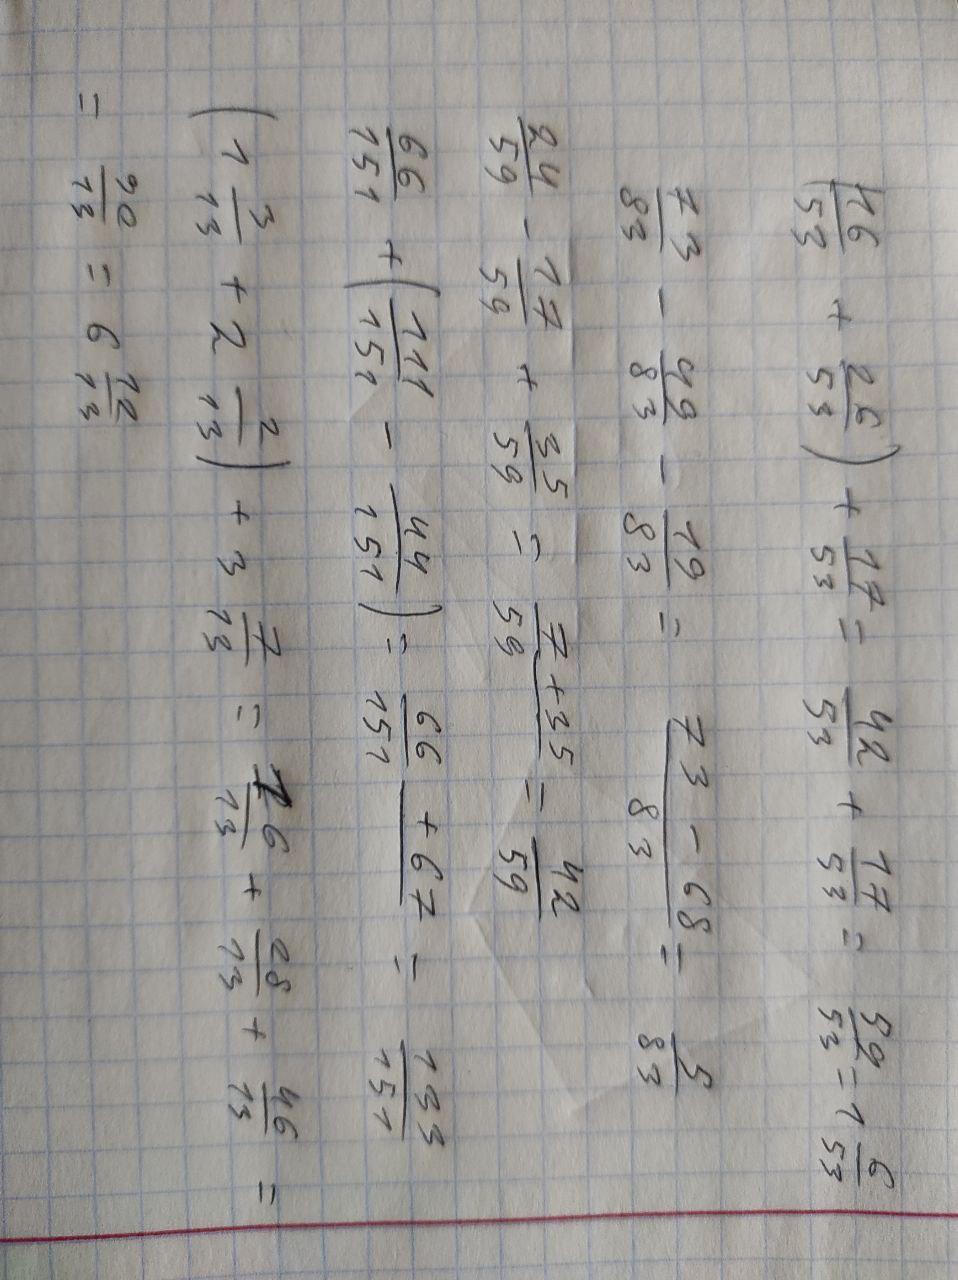 (16/53 + 26/53) + 17/53 = 42/53 + 17/53 = 59/53 = 1 6/53
73/83 - 49/83 - 19/83 = (73 - 68)/83 = 5/83
24/59 - 17/59 + 35/59 = (7 + 35)/59 = 42/59
66/151 + (111/151 - 44/151) = (66 + 67)/151 = 133/151
(1 3/13 + 2 2/13) + 3 7/13 = 16/13 + 28/13 + 46/13 =
= 90/13 = 6 12/13